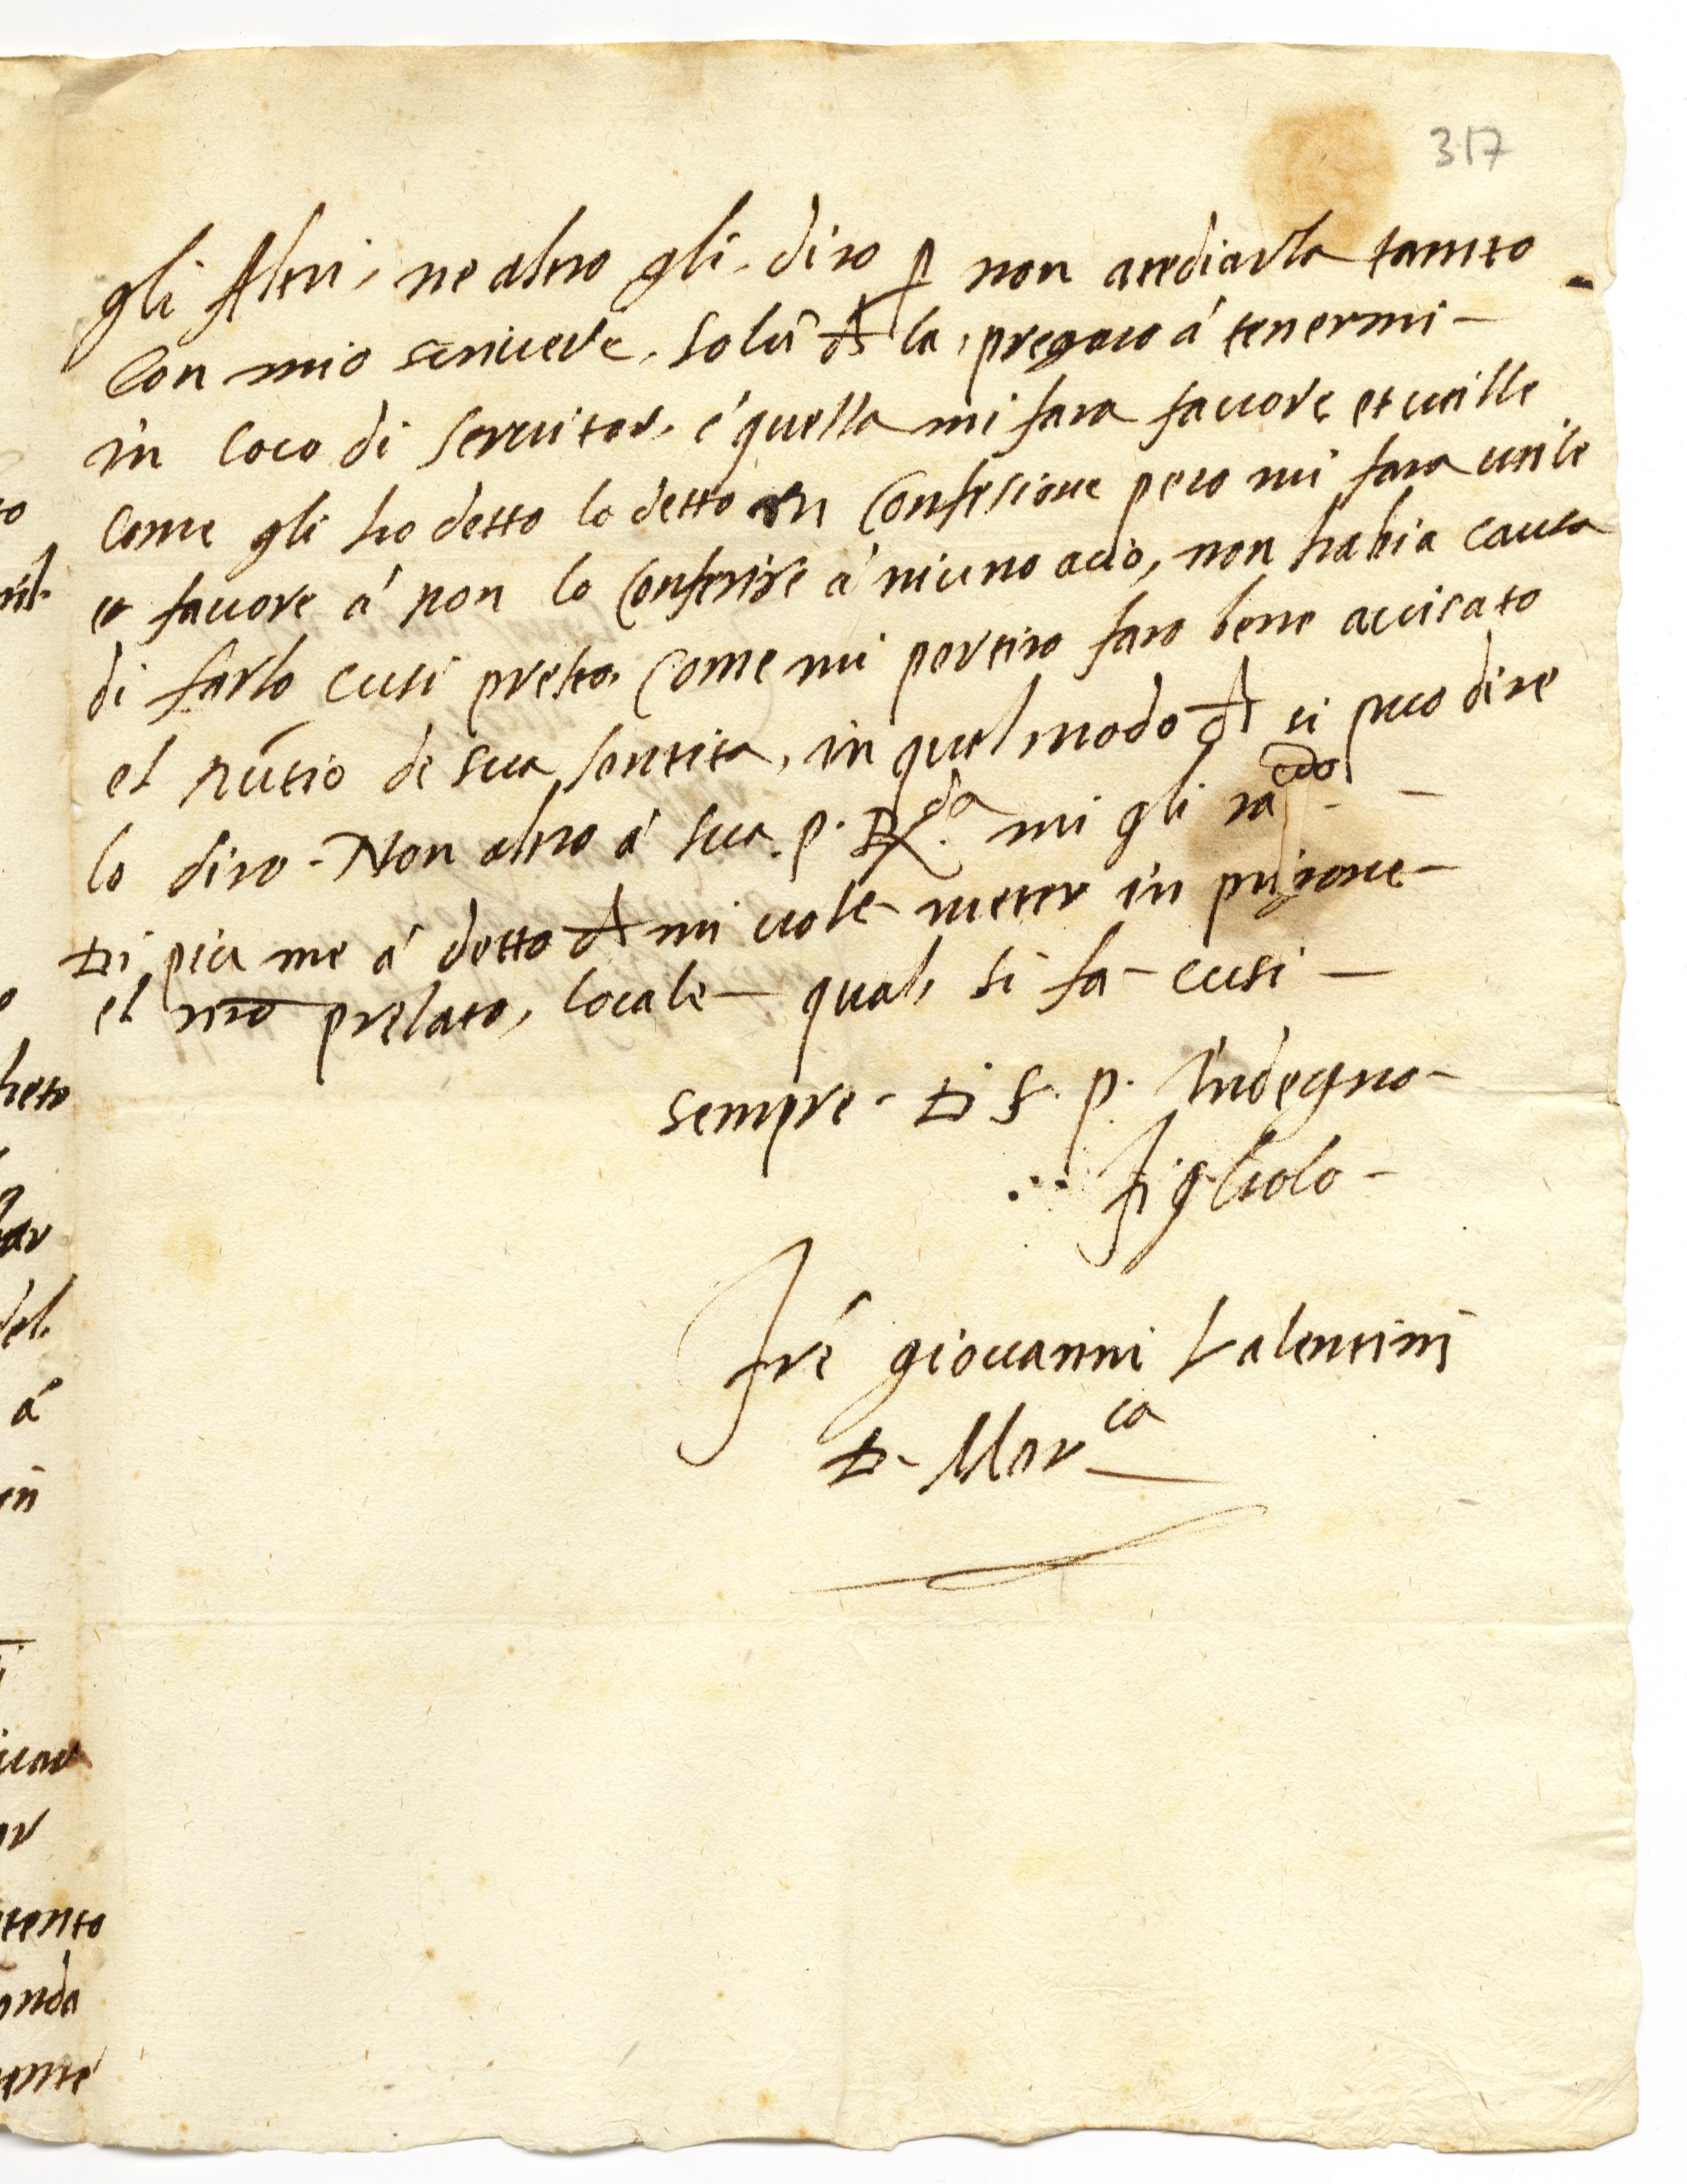 317
gli Altri, ne altro gli diro p non atediarla tamto
Con mio scriuere, solū ch la, pregaro á tenermi -
in loco di seruitor, é quella mi fara fauore et utille
Come gli ho detto lo detto in Confesione pero mi fara utile
et fauore á non lo Conferire á niuno acio, non habia causa
di farlo cusi presto, Come mi partiro faro bene auisato
el nūtio de sua santita, in quel modo ch si puo dire
lo diro - Non altro á sua. p. R.da mi gli racdo. -
Di piu me á detto ch mi uole meter in prigione -
el nro prelato, locale - qual, si fa - cusi -
sempre - Di S. p. Indegno -
figliuolo -
Fré giouanni Valentini
D - Marca